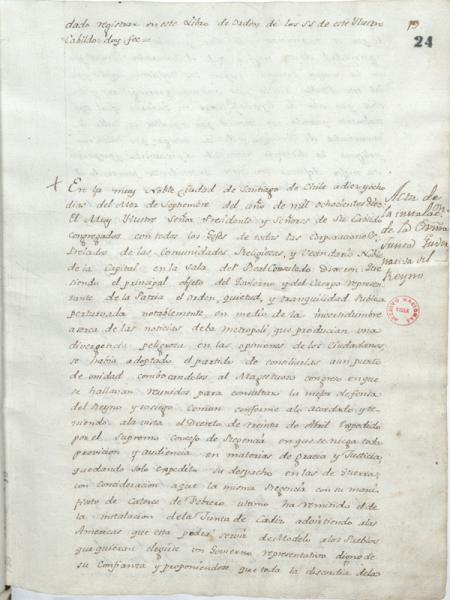 dado registrar en este Libro de Orden, de los SS de este Ilustre
Cabildo doy fee
24
En la muy Noble Ciudad de Santiago de Chile a diez y ocho
dias del Mez de Septiembre del año de mil ochocientos diez
El Muy Ilustre Señor Presidente y Señores de su Cabildo
congregados con todos los Gefes de todas las Corporaciones
Prelados de las Comunidades Religiosas, y Vecindario Noble
de la Capital en la Sala del Real Consulado Dixeron: Que
siendo el principal objeto del Govierno y del Cuerpo represen
tante de la Patria el orden, quietud, y tranquilidad Publica
perturvada notablemente, en medio de la incertidumbre
acerca de las noticias dela metropoli que producian una
divergencia peligrosa en las opiniones de los Ciudadanos,
se habia adoptado el partido de conciliarlas a un punto
de unidad combocandolos al Magestuoso congreso en que
se hallavan reunidos para consultar la mejor defensa
del Reyno y sociego Comun conforme a lo acordado y te
niendo a la vista el Decreto de treinta de Abril Expedido
por el Supremo Concejo de Regencia en que se niega toda
provicion y audiencia en materias de gracia y Justicia,
quedando solo expedito su despacho en las de Guerra,
con consideracion a que la misma Regencia con su mani
fiesto de Catorce de Febrero ultimo ha remitido el de
la instalacion dela Junta de Cadiz advirtiendo a las
Americas que esta podra servir de Modelo a los Pueblos
que quieran elegirse un Govierno representativo digno de
su Confianza y proponiendose que toda la discordia dela
Acta de
la instalacon
de la
Junta Guber
nativa del
Reyno
ARCHIVO NACIONAL
CHILE